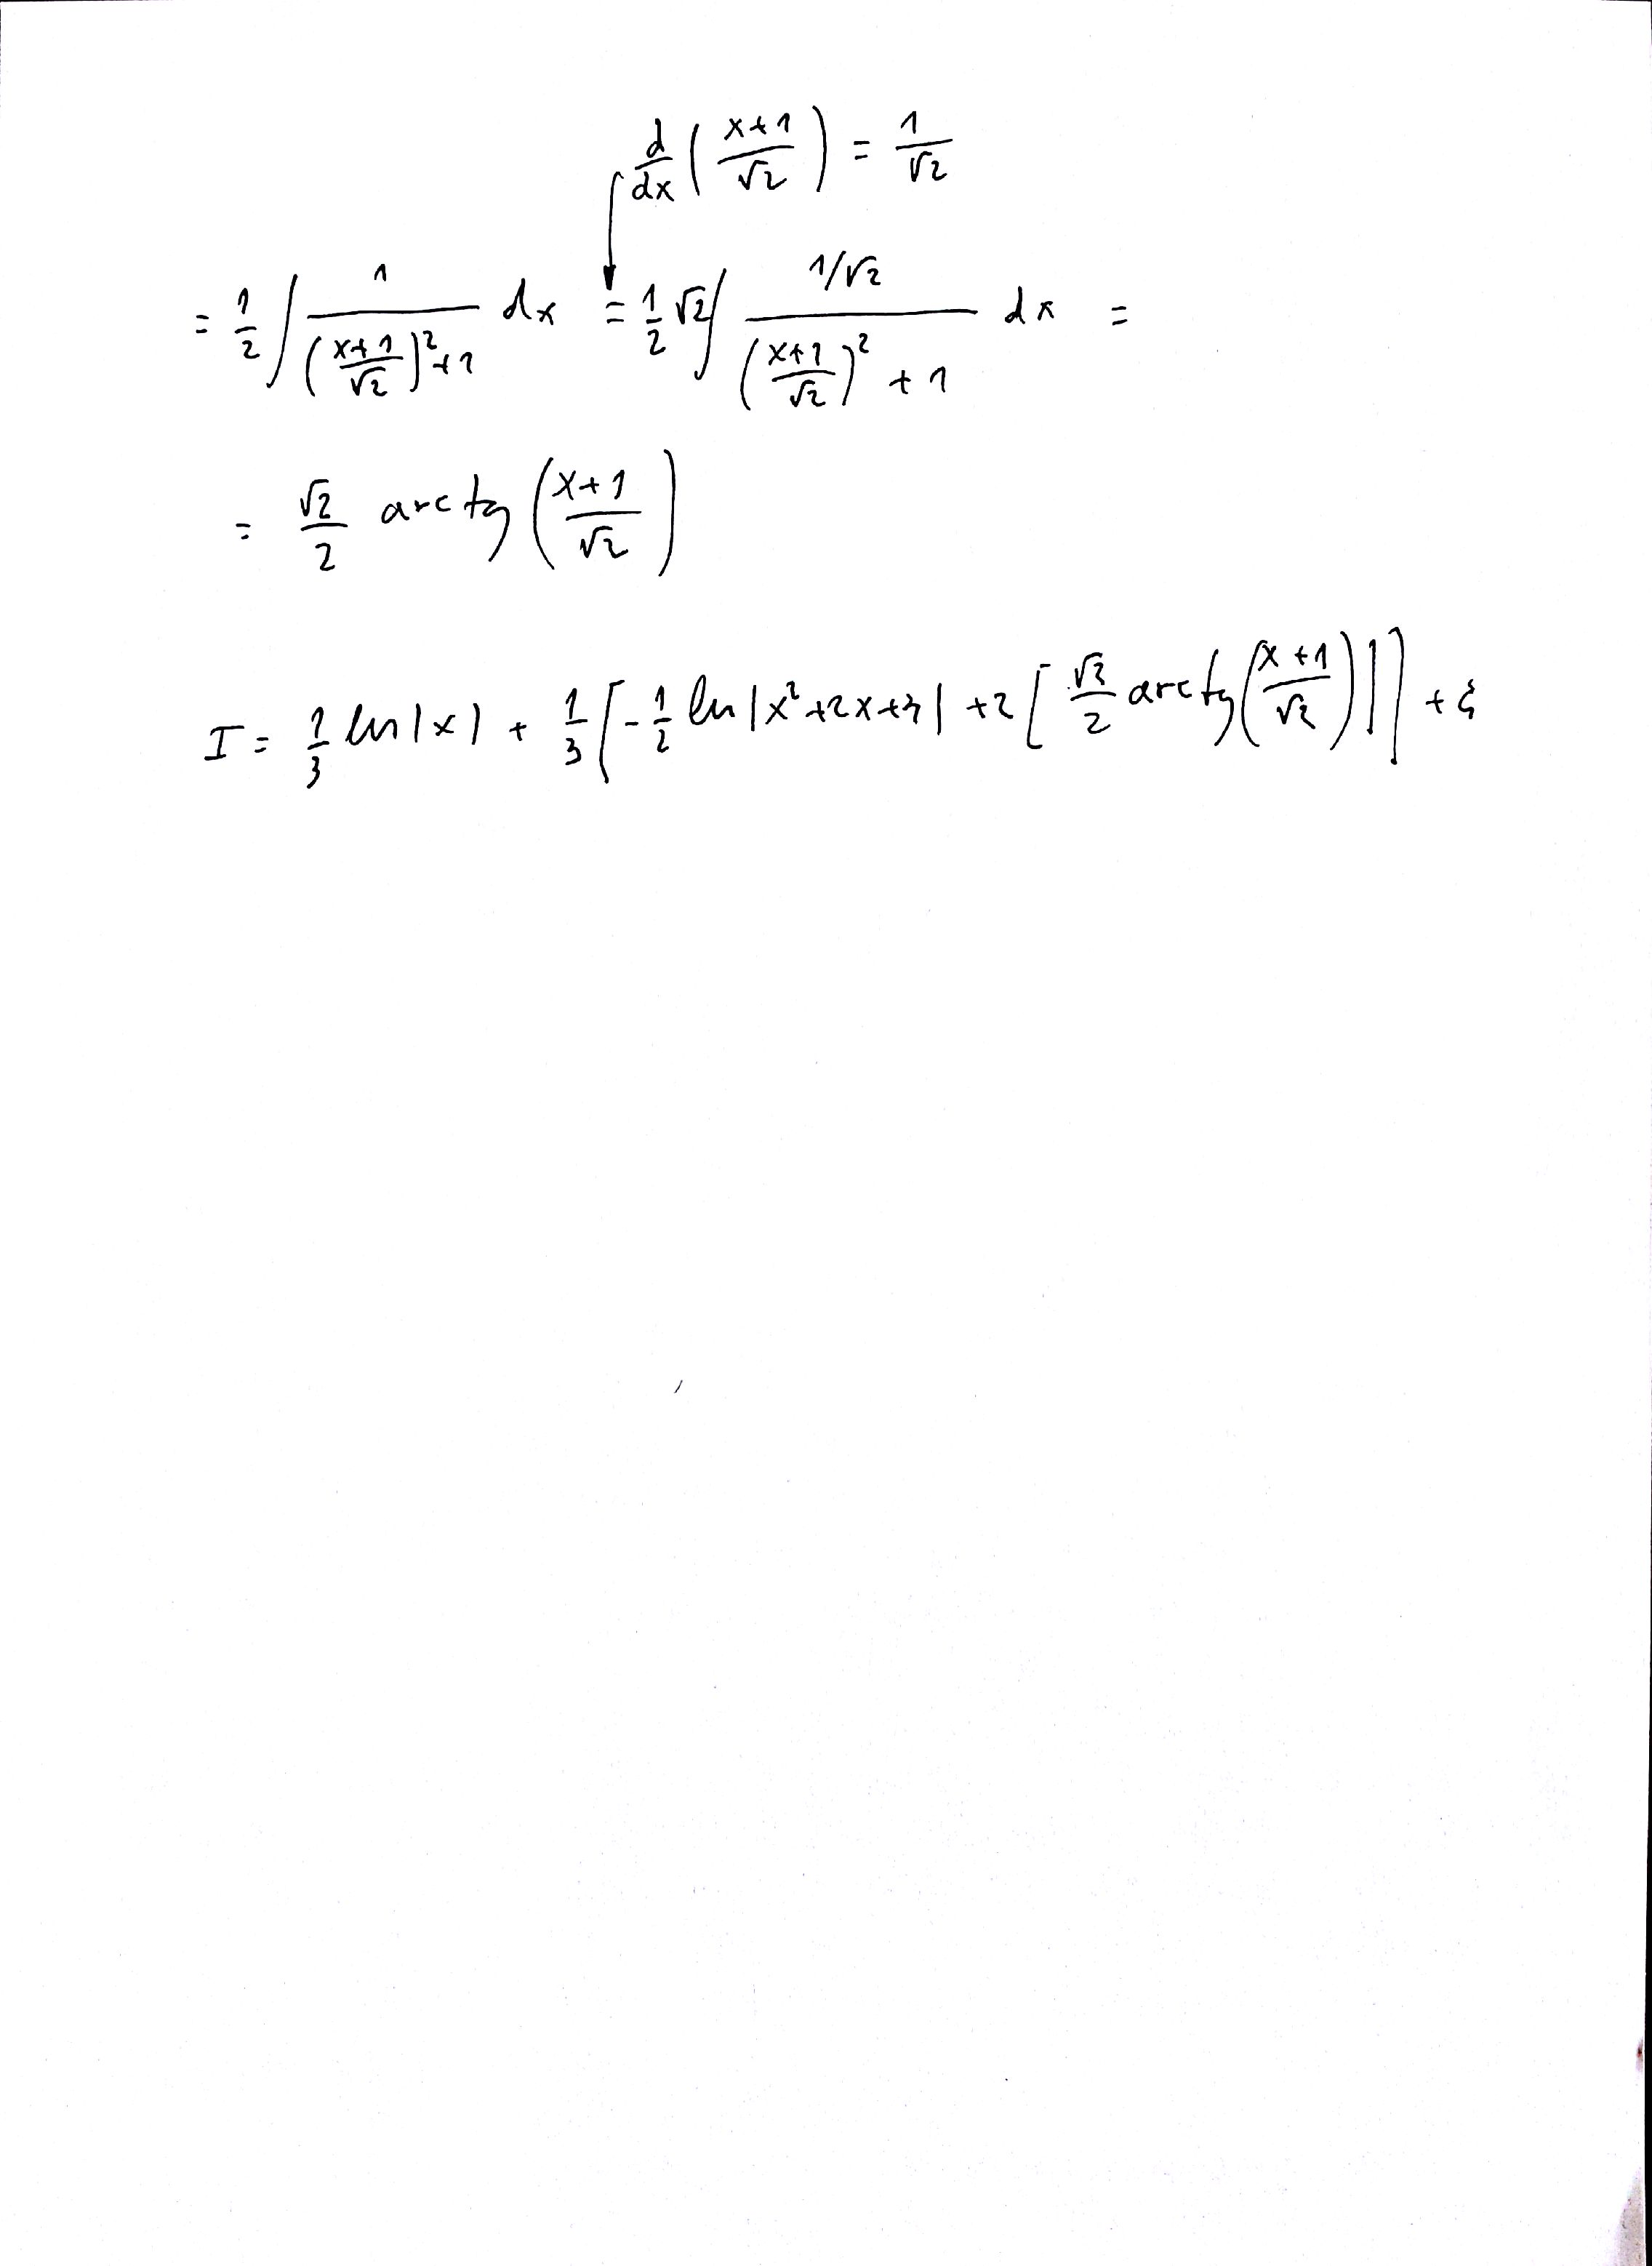 d/dx ( (x+1)/√2 ) = 1/√2
= 1/2 ∫ 1/( ((x+1)/√2)² + 1 ) dx = 1/2 √2 ∫ (1/√2)/( ((x+1)/√2)² + 1 ) dx =
= √2/2 arctg ( (x+1)/√2 )
I = 1/3 ln|x| + 1/3 [ -1/2 ln|x²+2x+3| + 2 [ √2/2 arctg( (x+1)/√2 ) ] ] +